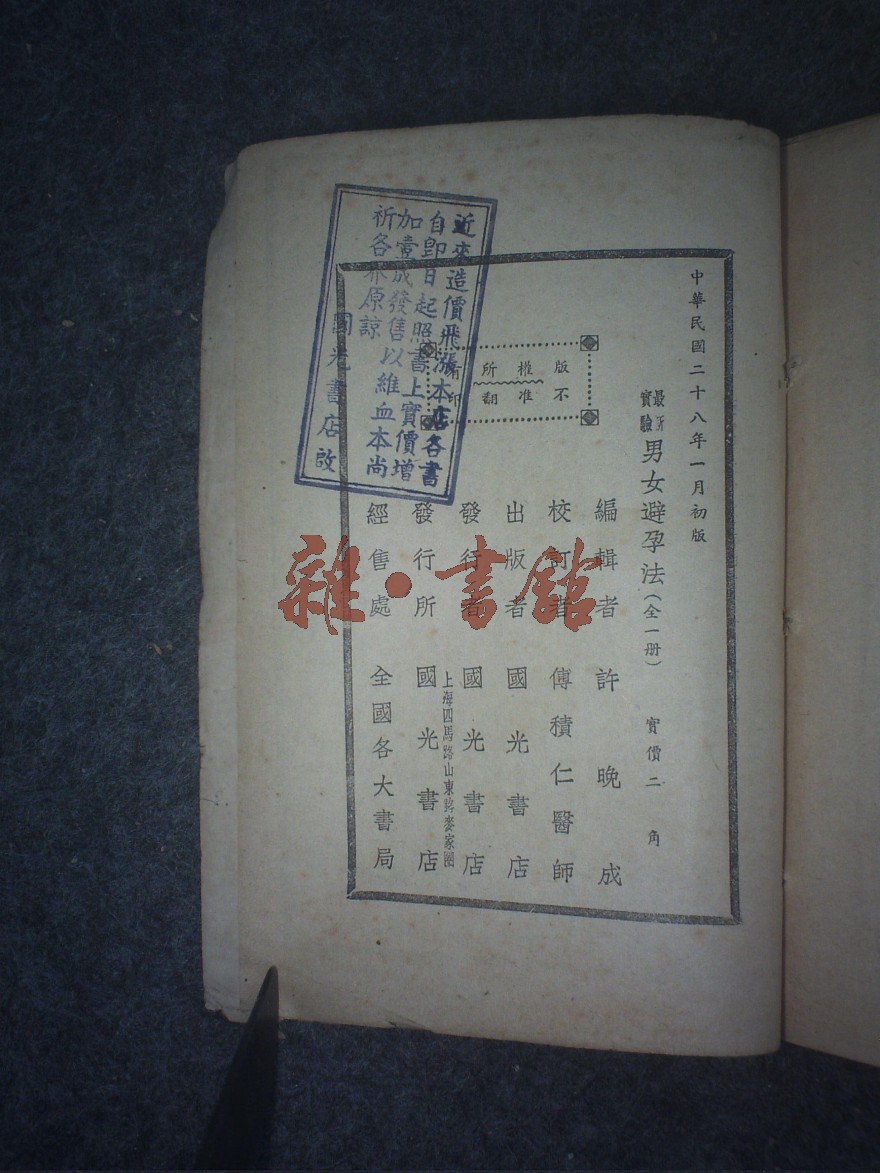 中華民國二十八年一月初版
最新實驗 男女避孕法（全一册） 實價二角
版權所有
不准翻印
編輯者 許晚成
校訂者 傅積仁醫師
出版者 國光書店
發行者 國光書店
上海四馬路山東路麥家圈
發行所 國光書店
經售處 全國各大書局
近來造價飛漲本店各書
自即日起照書上實價增
加壹成發售以維血本尚
祈各界原諒
國光書店啟
雜·書館